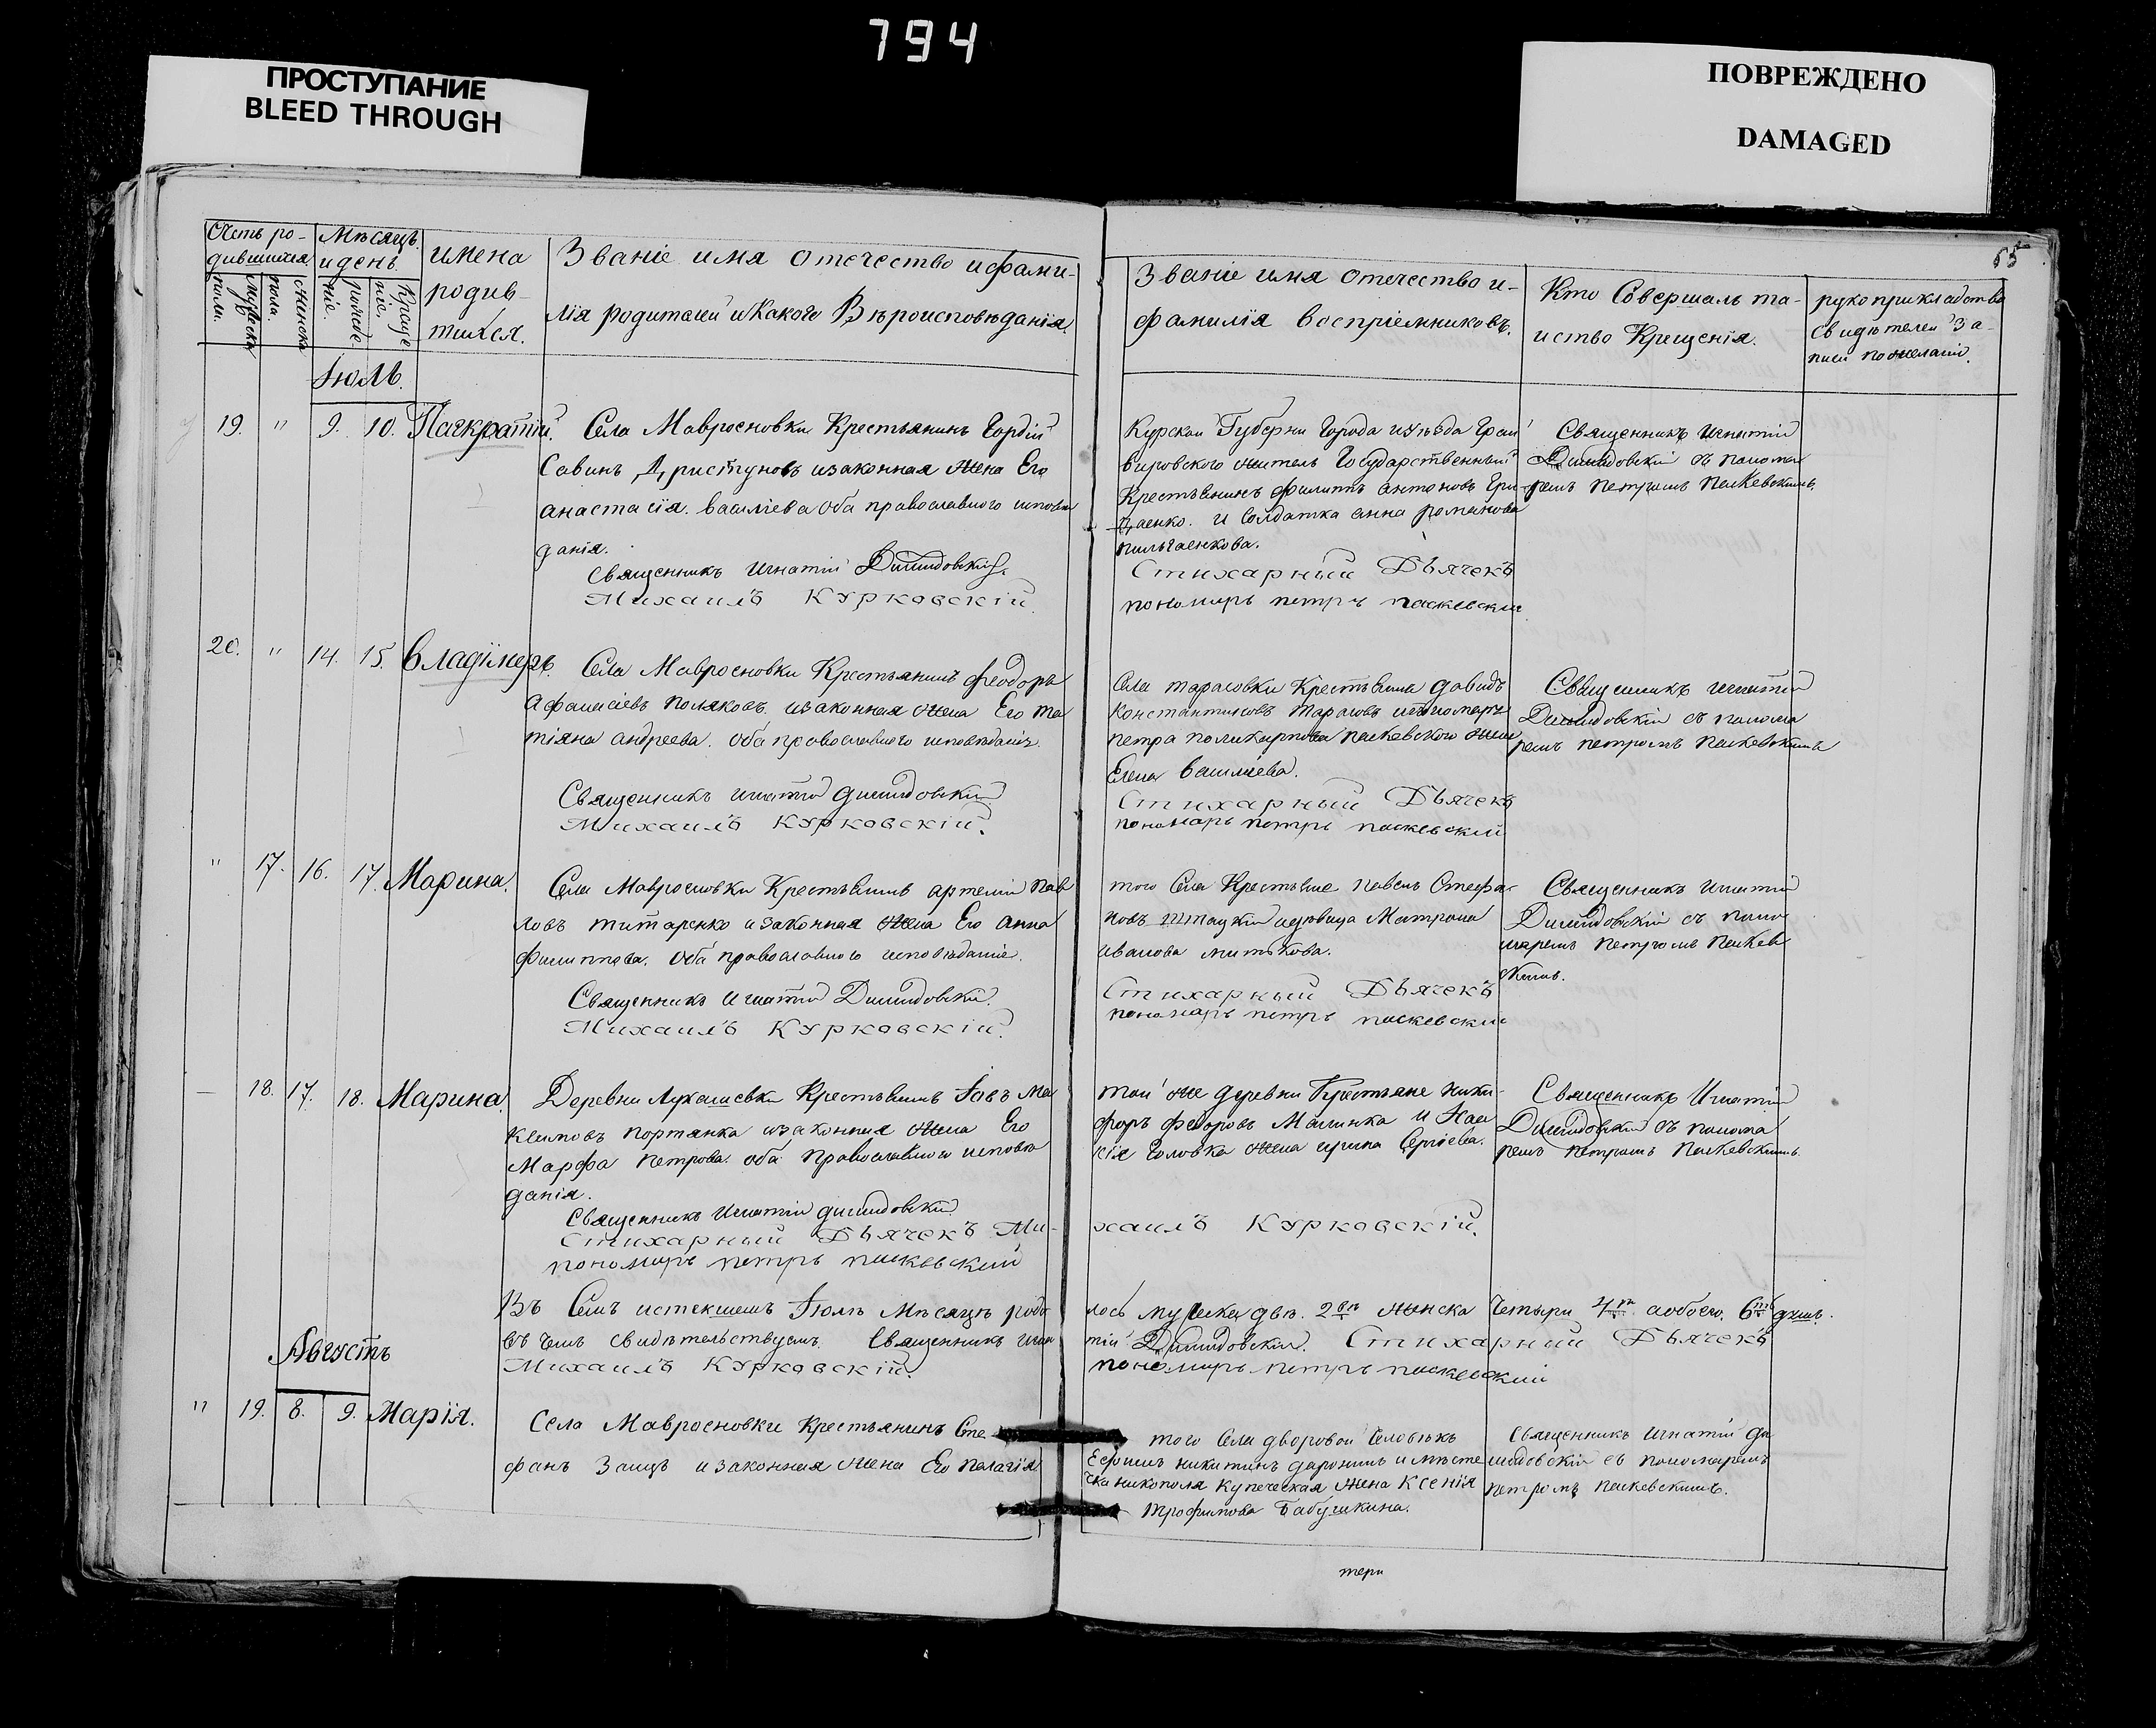 794
ПРОСТУПАНИЕ
BLEED THROUGH
ПОВРЕЖДЕНО
DAMAGED
65
Счетъ ро-
дившихся
Мѣсяцъ
и день
имена
родив-
шихся.
Званіе имя отечество и фами-
лія родителей и какого Вѣроисповѣданія.
Званіе имя отечество и
фамилія воспріемниковъ.
Кто совершалъ та-
инство Крещенія.
рукоприкладство
свидѣтелей за-
писи по желанію.
мужеска
пола.
женска
пола.
рожде-
ніе.
Креще
ніе.
Іюль.
19. " 9. 10. Панкратій.
Села Мавросновки Крестьянинъ Гордій
Савинъ изаконная жена Его
анастасія. василіева оба православного исповѣ
данія.
Священникъ Игнатій Димидовскій
Михаилъ Курковскій.
Курской Губерни Города и уѣзда Грай
вировского житель Государственный
Крестьянинъ филиппъ антоновъ Гри
цаенко. и солдатка анна романова
пильгаенкова.
Стихарный Дьячекъ
пономарь петръ паскевскій
Священникъ игнатій
Димидовскій съ понома
ремъ петромъ Паскевскимъ.
20. " 14. 15. Владимеръ.
Села Мавросновки Крестьянинъ феодоръ
Афанасіевъ поляковъ. изаконная жена Его та
тіяна андреева. оба православного исповѣданія.
Священникъ игнатій димидовскій
Михаилъ Курковскій.
Села тарасовки Крестьянинъ давидъ
Константиновъ тарасовъ ипономаря
петра поликарпова паскевского жена
Елена василіева.
Стихарный Дьячекъ
пономарь петръ паскевскій
Священникъ игнатій
Димидовскій съ понома
ремъ петромъ паскевскимъ
" 17. 16. 17. Марина.
Села Мавросновки Крестьянинъ артемій пав
ловъ титаренко изаконная жена Его анна
филиппова. оба православного исповѣданіе.
Священникъ Игнатій Димидовскій.
Михаилъ Курковскій.
того Села Крестьяне павелъ Стефа-
новъ Матрона
иванова митькова.
Стихарный Дьячекъ
пономарь петръ паскевскій
Священникъ игнатій
Димидовскій съ поно
маремъ петромъ паскев
скимъ.
— 18. 17. 18. Марина.
Деревни Лукашевки Крестьянинъ Іовъ Ма
ксимовъ портянка изаконная жена Его
Марфа петрова. оба православного исповѣ
данія.
Священникъ Игнатій димидовскій
Стихарный Дьячекъ Ми-
пономарь петръ паскевскій
той же деревни Крестьяне ники-
форъ федоровъ Малинка и
Головка жена ирина Сергіева.
хаилъ Курковскій.
Священникъ Игнатій
Димидовскій съ понома
ремъ петромъ Паскевскимъ.
Въ Семъ истекшемъ Іюлѣ Мѣсяцѣ роди
лось мужеска двѣ. 2 женска Четыри 4 аобоего. 6 душъ.
въ чемъ свидѣтельствуемъ. Священникъ игна
тій Димидовскій. Стихарный Дьячекъ
Михаилъ Курковскій.
пономарь петръ паскевскій
Августъ
" 19. 8. 9. Марія.
Села Мавросновки Крестьянинъ Сте
фанъ Заицъ изаконная жена Его Палагія
того Села дворовой Человѣкъ
Ефимъ никитинъ и мѣсте
чка никополя Купеческая жена Ксенія
трофимова Бабушкина.
Священникъ Игнатій ди
мидовскій съ пономаремъ
петромъ паскевскимъ.
тери